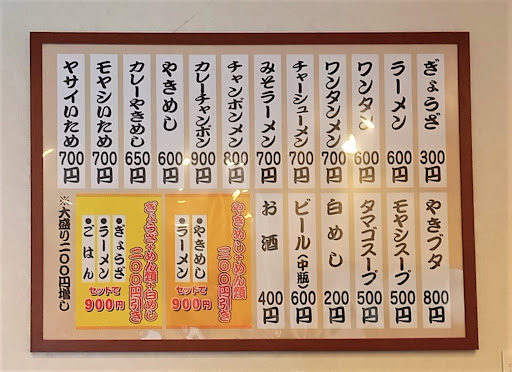 ぎょうざ 300円
ラーメン 600円
ワンタン 600円
ワンタンメン 700円
チャーシューメン 700円
みそラーメン 700円
チャンポンメン 800円
カレーチャンポン 900円
やきめし 600円
カレーやきめし 650円
モヤシいため 700円
ヤサイいため 700円
やきブタ 800円
モヤシスープ 500円
タマゴスープ 500円
白めし 200円
ビール(中瓶) 600円
お酒 400円
やきめし+めん類
三〇〇円引き
●やきめし
●ラーメン
セットで
900円
ぎょうざ+めん類+白めし
二〇〇円引き
●ぎょうざ
●ラーメン
●ごはん
セットで
900円
※大盛り二〇〇円増し